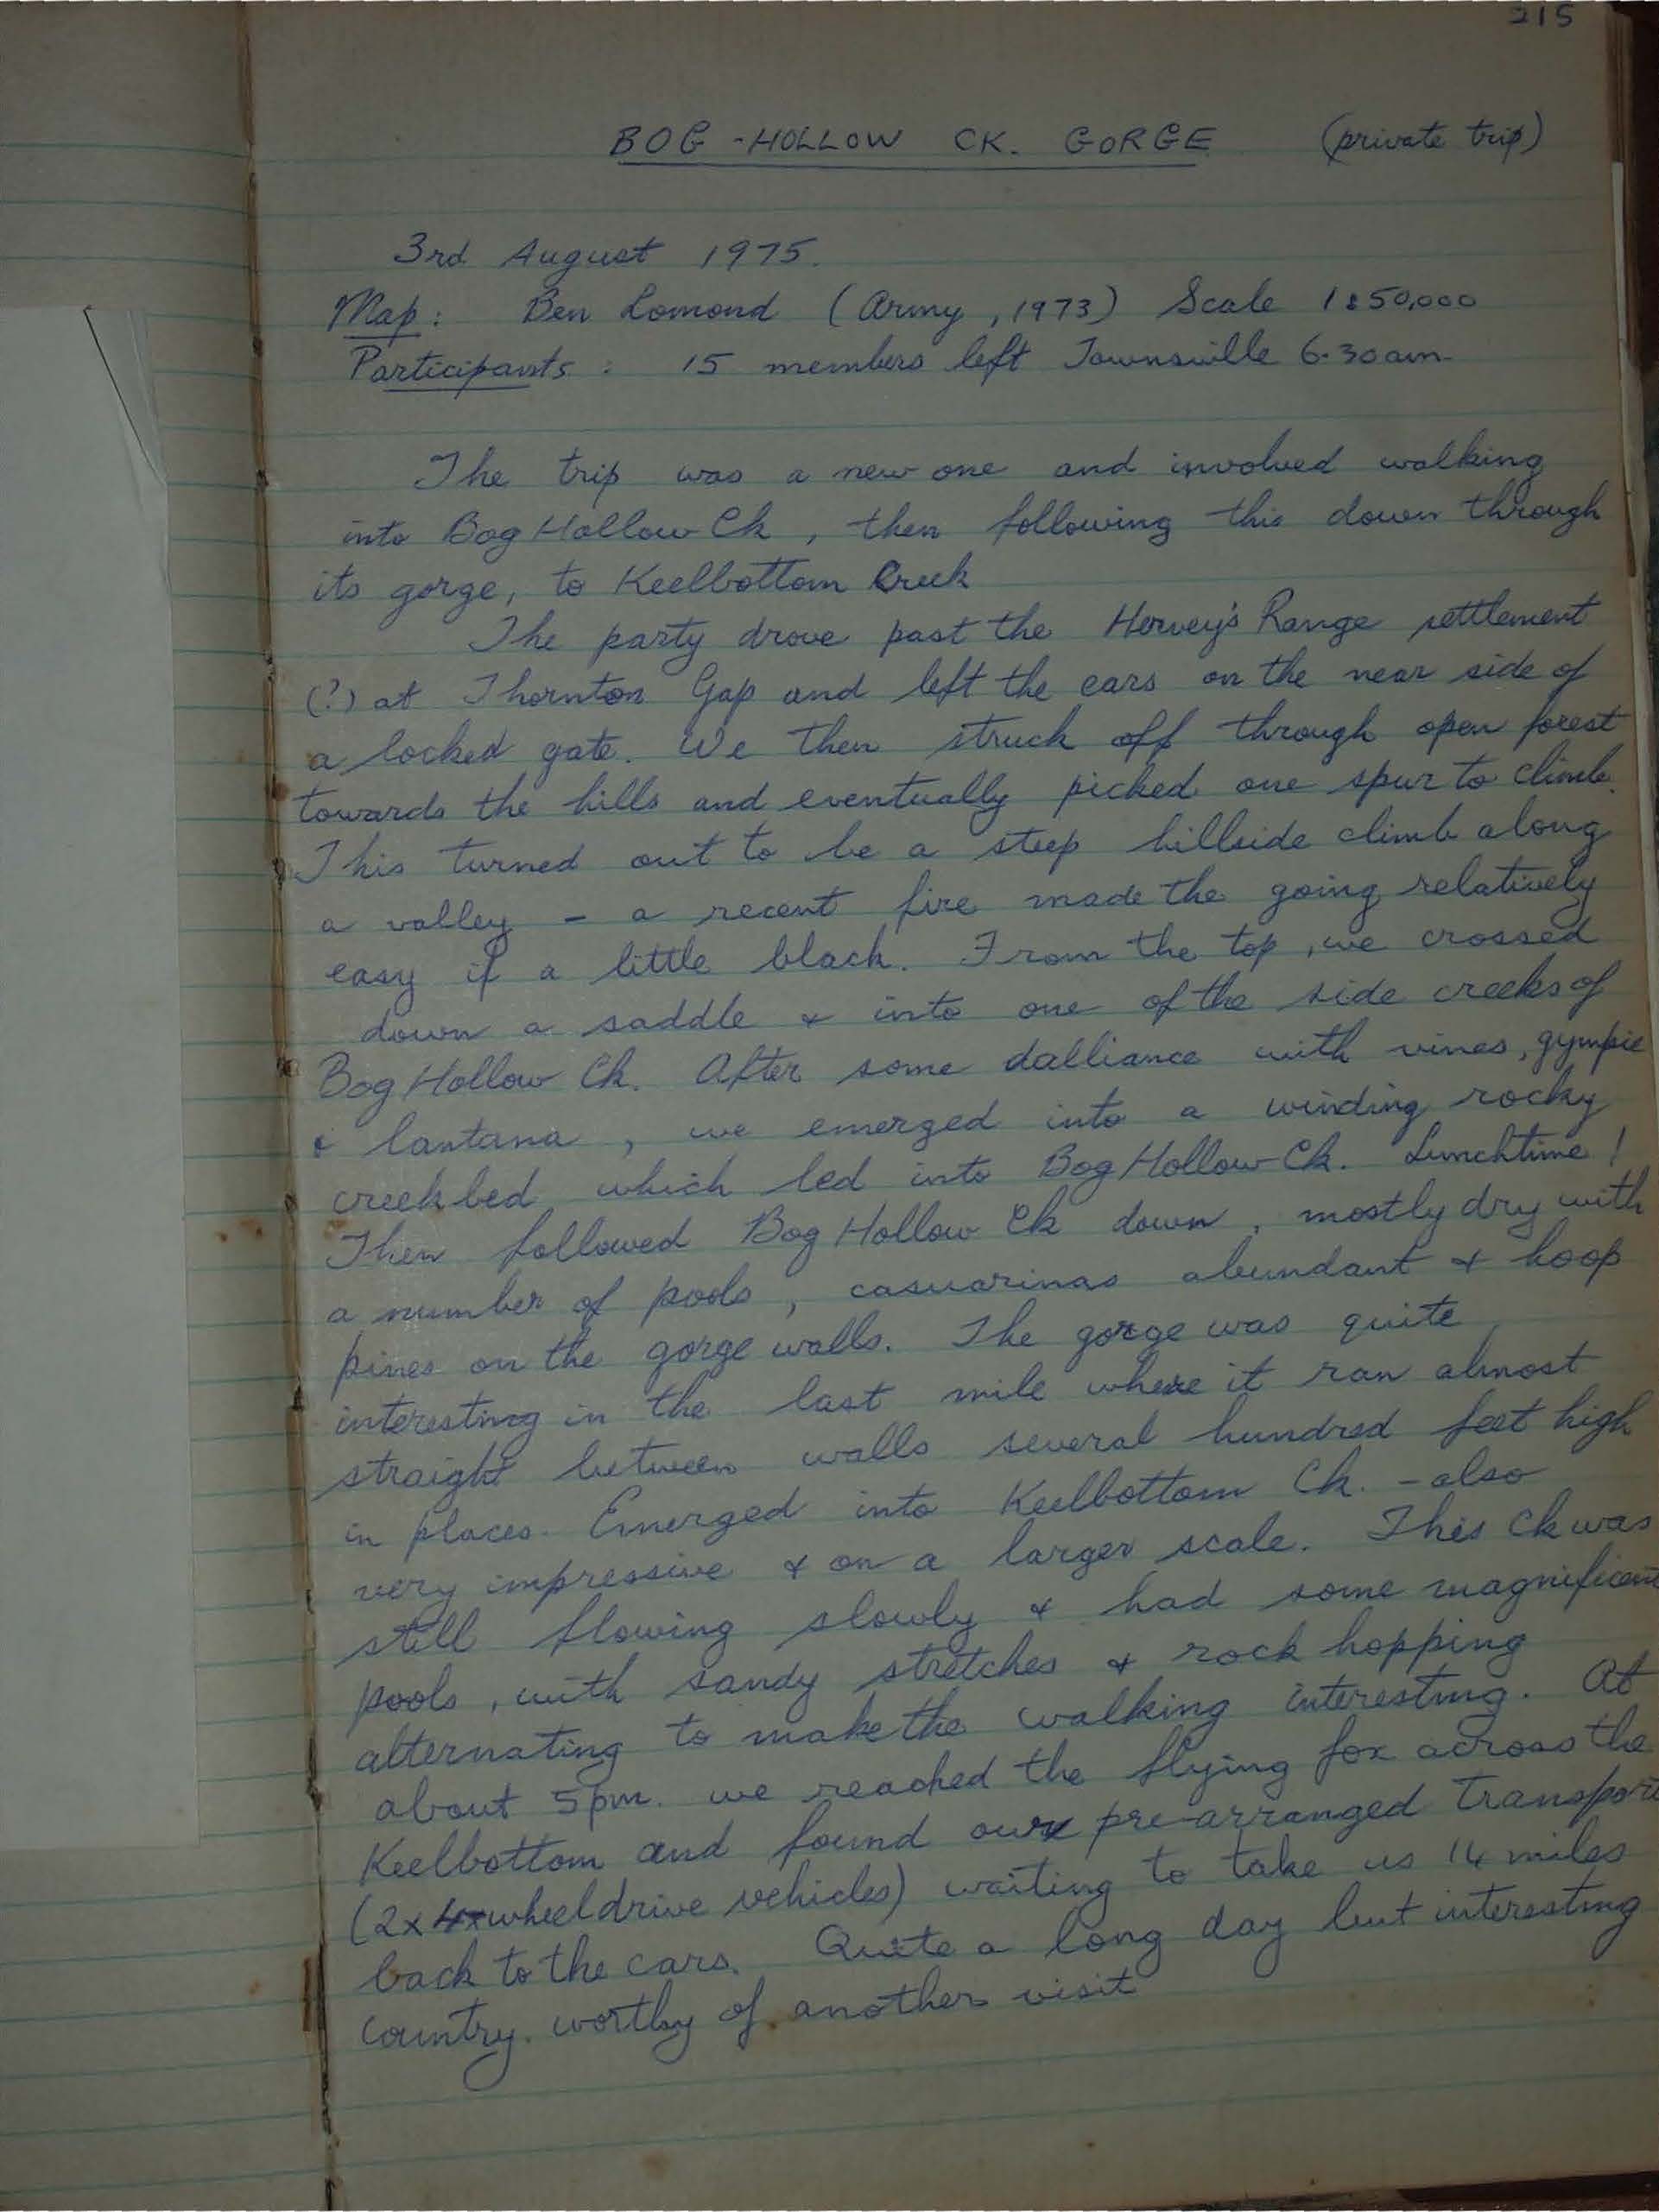 215
BOG-HOLLOW CK. GORGE (private trip)
3rd August 1975.
Map: Ben Lomond (Army, 1973) Scale 1:50,000
Participants: 15 members left Townsville 6.30am
The trip was a new one and involved walking
into Bog Hollow Ck, then following this down through
its gorge, to Keelbottom Creek
The party drove past the Hervey's Range settlement
(?) at Thornton Gap and left the cars on the near side of
a locked gate. We then struck off through open forest
towards the hills and eventually picked one spur to climb.
This turned out to be a steep hillside climb along
a valley - a recent fire made the going relatively
easy if a little black. From the top, we crossed
down a saddle & into one of the side creeks of
Bog Hollow Ck. After some dalliance with vines, gympie
& lantana, we emerged into a winding rocky
creek bed which led into Bog Hollow Ck. Lunchtime!
Then followed Bog Hollow Ck down, mostly dry with
a number of pools, casuarinas abundant & hoop
pines on the gorge walls. The gorge was quite
interesting in the last mile where it ran almost
straight between walls several hundred feet high
in places. Emerged into Keelbottom Ck. - also
very impressive & on a larger scale. This Ck was
still flowing slowly & had some magnificent
pools, with sandy stretches & rock hopping
alternating to make the walking interesting. At
about 5pm. we reached the flying fox across the
Keelbottom and found our pre-arranged transport
(2x4 wheel drive vehicles) waiting to take us 14 miles
back to the cars. Quite a long day but interesting
country. worthy of another visit